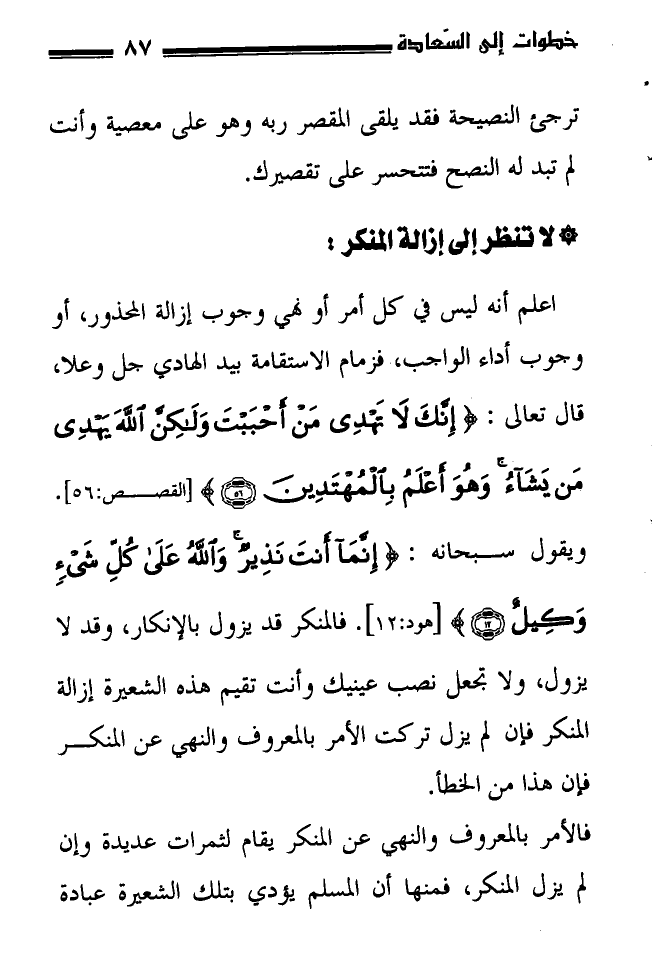 خطوات إلى السّعادة ٨٧
ترجئ النصيحة فقد يلقى المقصر ربه وهو على معصية وأنت
لم تبد له النصح فتتحسر على تقصيرك.
۞ لا تنظر إلى إزالة المنكر :
اعلم أنه ليس في كل أمر أو نهي وجوب إزالة المحذور، أو
وجوب أداء الواجب، فزمام الاستقامة بيد الهادي جل وعلا،
قال تعالى : ﴿ إِنَّكَ لَا تَهْدِى مَنْ أَحْبَبْتَ وَلَٰكِنَّ ٱللَّهَ يَهْدِى
مَن يَشَآءُ ۚ وَهُوَ أَعْلَمُ بِٱلْمُهْتَدِينَ ٥٦ ﴾ [القصــص:٥٦].
ويقول ســبحانه : ﴿ إِنَّمَآ أَنتَ نَذِيرٌ ۚ وَٱللَّهُ عَلَىٰ كُلِّ شَىْءٍ
وَكِيلٌ ١٢ ﴾ [هود:١٢]. فالمنكر قد يزول بالإنكار، وقد لا
يزول، ولا تجعل نصب عينيك وأنت تقيم هذه الشعيرة إزالة
المنكر فإن لم يزل تركت الأمر بالمعروف والنهي عن المنكــر
فإن هذا من الخطأ.
فالأمر بالمعروف والنهي عن المنكر يقام لثمرات عديدة وإن
لم يزل المنكر، فمنها أن المسلم يؤدي بتلك الشعيرة عبادة